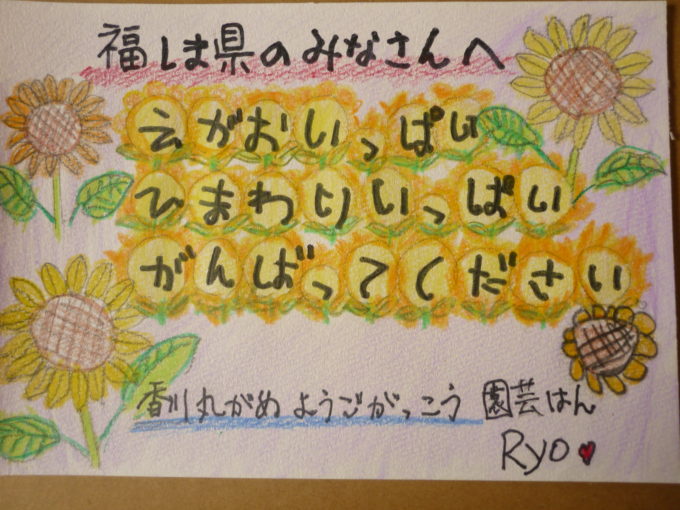 福しま県のみなさんへ
えがおいっぱい
ひまわりいっぱい
がんばってください
香川丸がめようごがっこう 園芸はん
Ryo